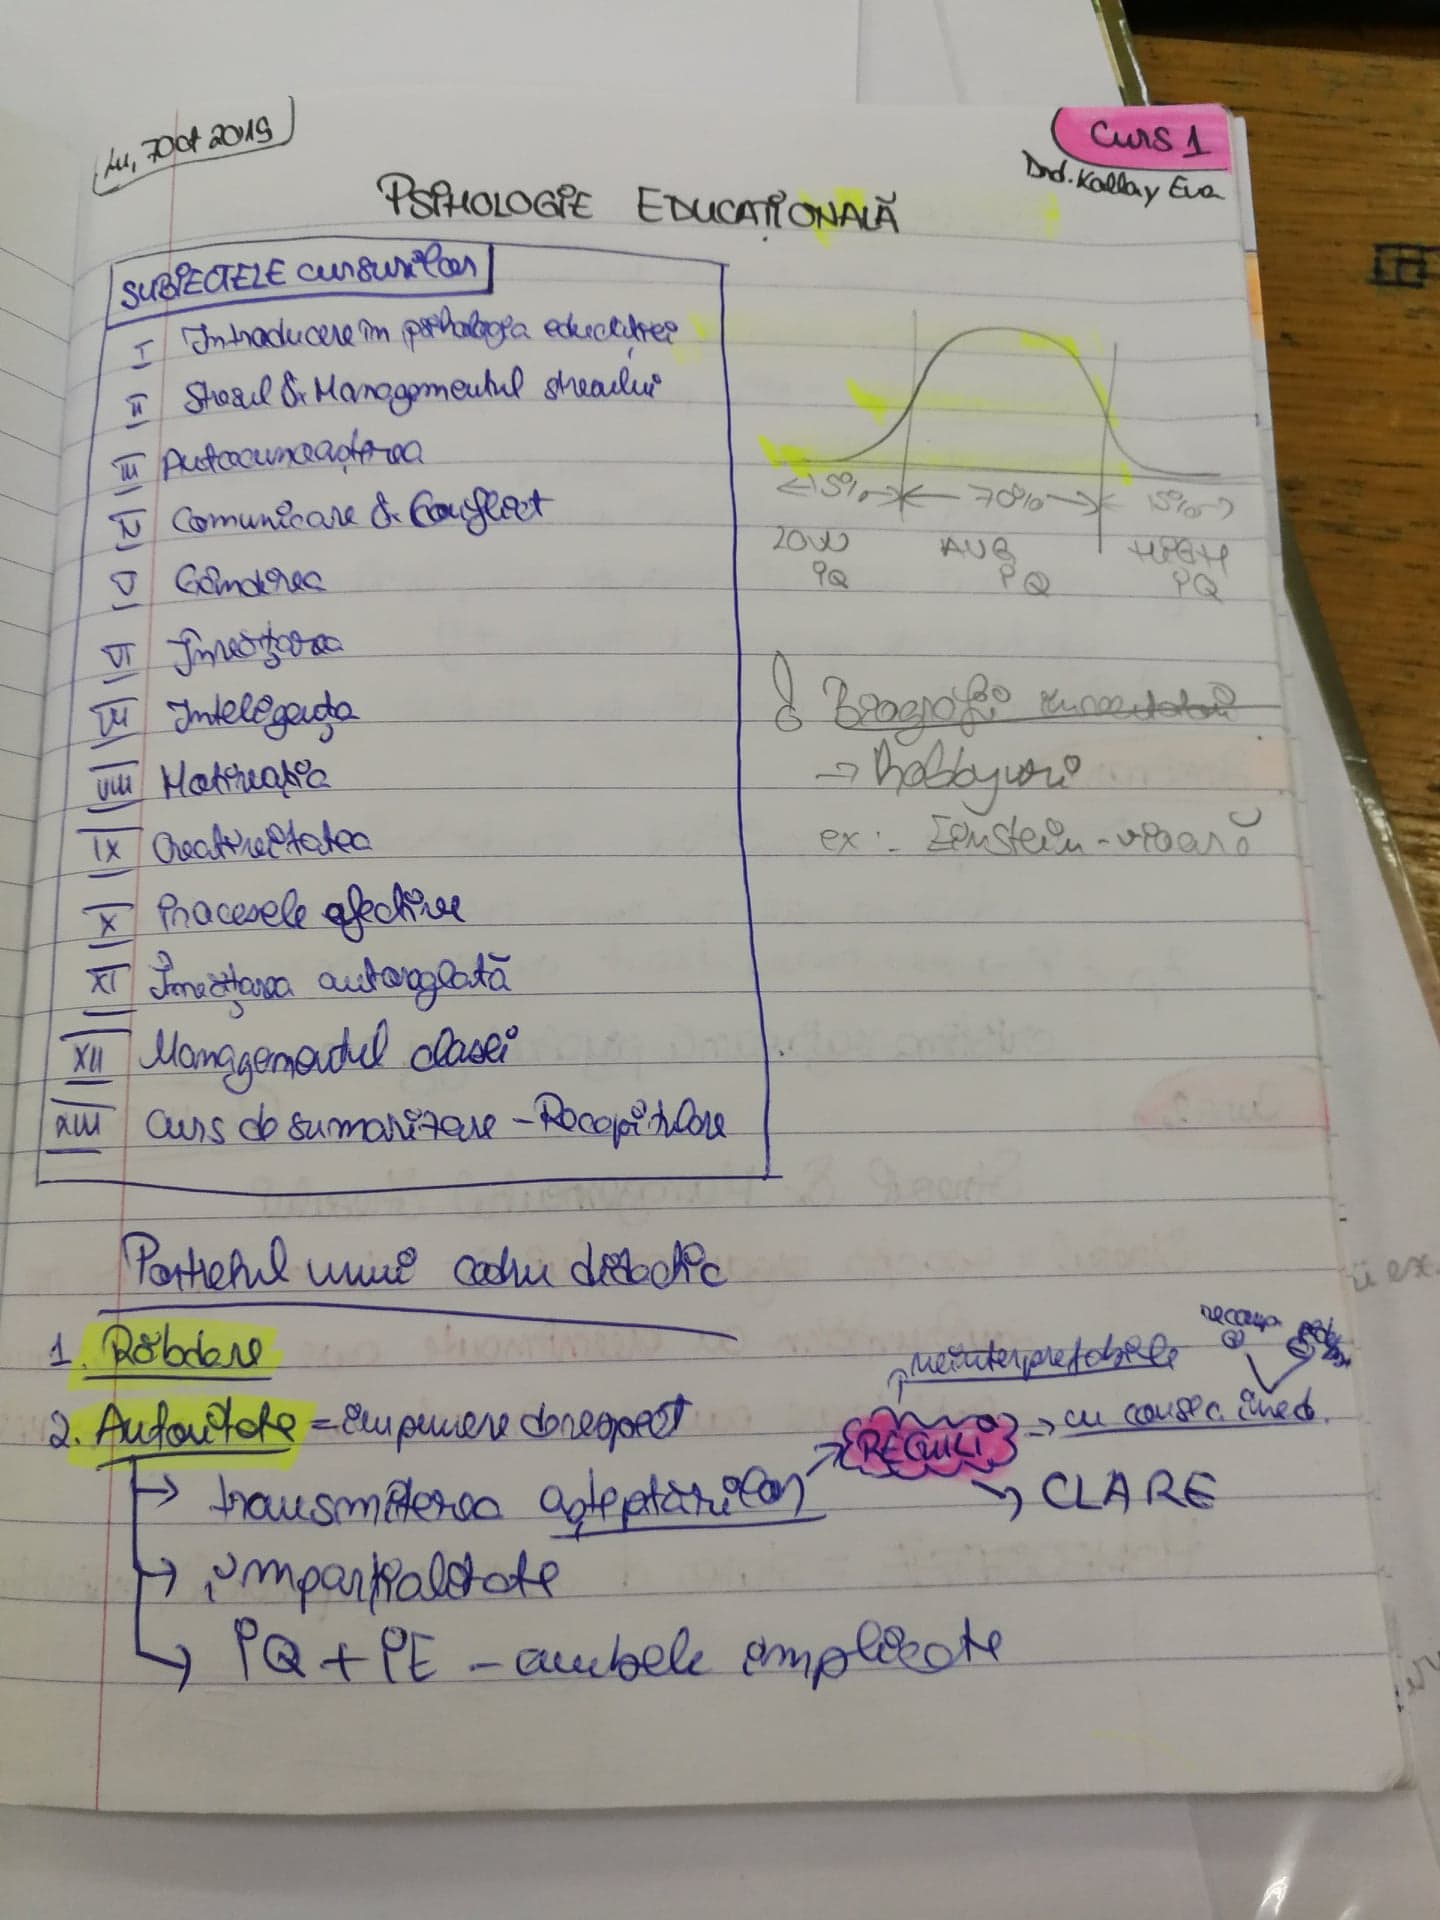 Lu, 7 Oct 2019
Curs 1
Drd. Kallay Eva
PSIHOLOGIE EDUCAȚIONALĂ
SUBIECTELE cursurilor
I Introducere în psihologia educației
II Stresul & Managementul stresului
III Autocunoașterea
IV Comunicare & Conflict
V Gândirea
VI Învățarea
VII Inteligența
VIII Motivația
IX Creativitatea
X Procesele afective
XI Învățarea autoreglată
XII Managementul clasei
XIII Curs de sumarizare - Recapitulare
15% 70% 15%
LOW AVG HIGH
IQ IQ IQ
! Biografii
→ Hobbyuri
ex: Einstein - vioară
Portretul unui cadru didactic
1. Răbdare
2. Autoritate = impunere de respect
→ transmiterea așteptărilor → REGULI → cu consec. imed.
neinterpretabile
recomp.
→ CLARE
→ imparțialitate
→ IQ + IE - ambele implicate
Curs 2
Stresul & Managementul Stresului
ex.